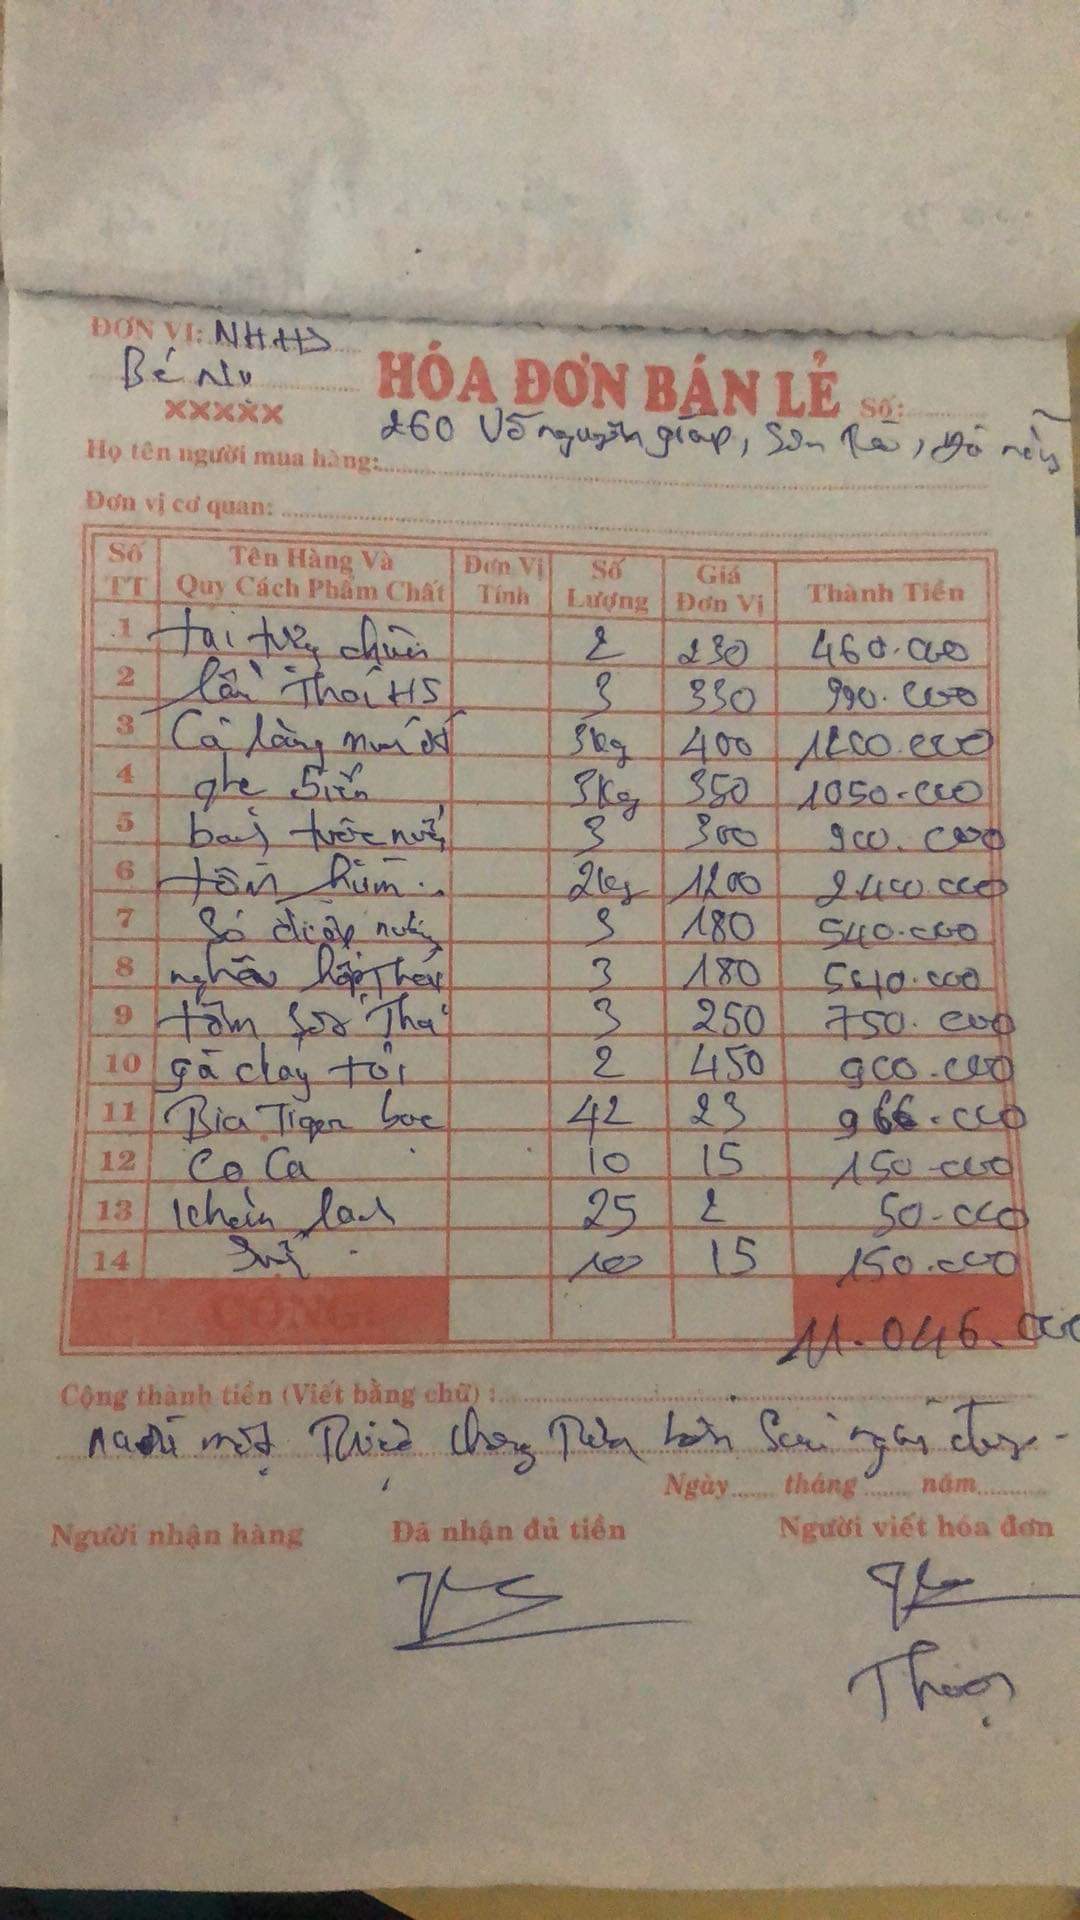 ĐƠN VỊ: NHHS
Bé Ni
xxxxx
HÓA ĐƠN BÁN LẺ Số:
260 Võ nguyên giáp, Sơn Trà, Đà nẵng
Họ tên người mua hàng:
Đơn vị cơ quan:
Số TT Tên Hàng Và Quy Cách Phẩm Chất Đơn Vị Tính Số Lượng Giá Đơn Vị Thành Tiền
1 tai tượng chiên 2 230 460.000
2 lẩu Thái HS 3 330 990.000
3 Cá 3kg 400 1200.000
4 ghẹ 3kg 350 1050.000
5 nướng 3 300 900.000
6 tôm hùm 2kg 1200 2400.000
7 Sò điệp nướng 3 180 540.000
8 nghêu hấp Thái 3 180 540.000
9 tôm Thái 3 250 750.000
10 gà 2 450 900.000
11 Bia Tiger bạc 42 23 966.000
12 Co Ca 10 15 150.000
13 khăn lạnh 25 2 50.000
14 10 15 150.000
CỘNG 11.046.000
Cộng thành tiền (Viết bằng chữ) :
mười một Triệu không Trăm bốn Sáu ngàn đồng
Ngày tháng năm
Người nhận hàng Đã nhận đủ tiền Người viết hóa đơn